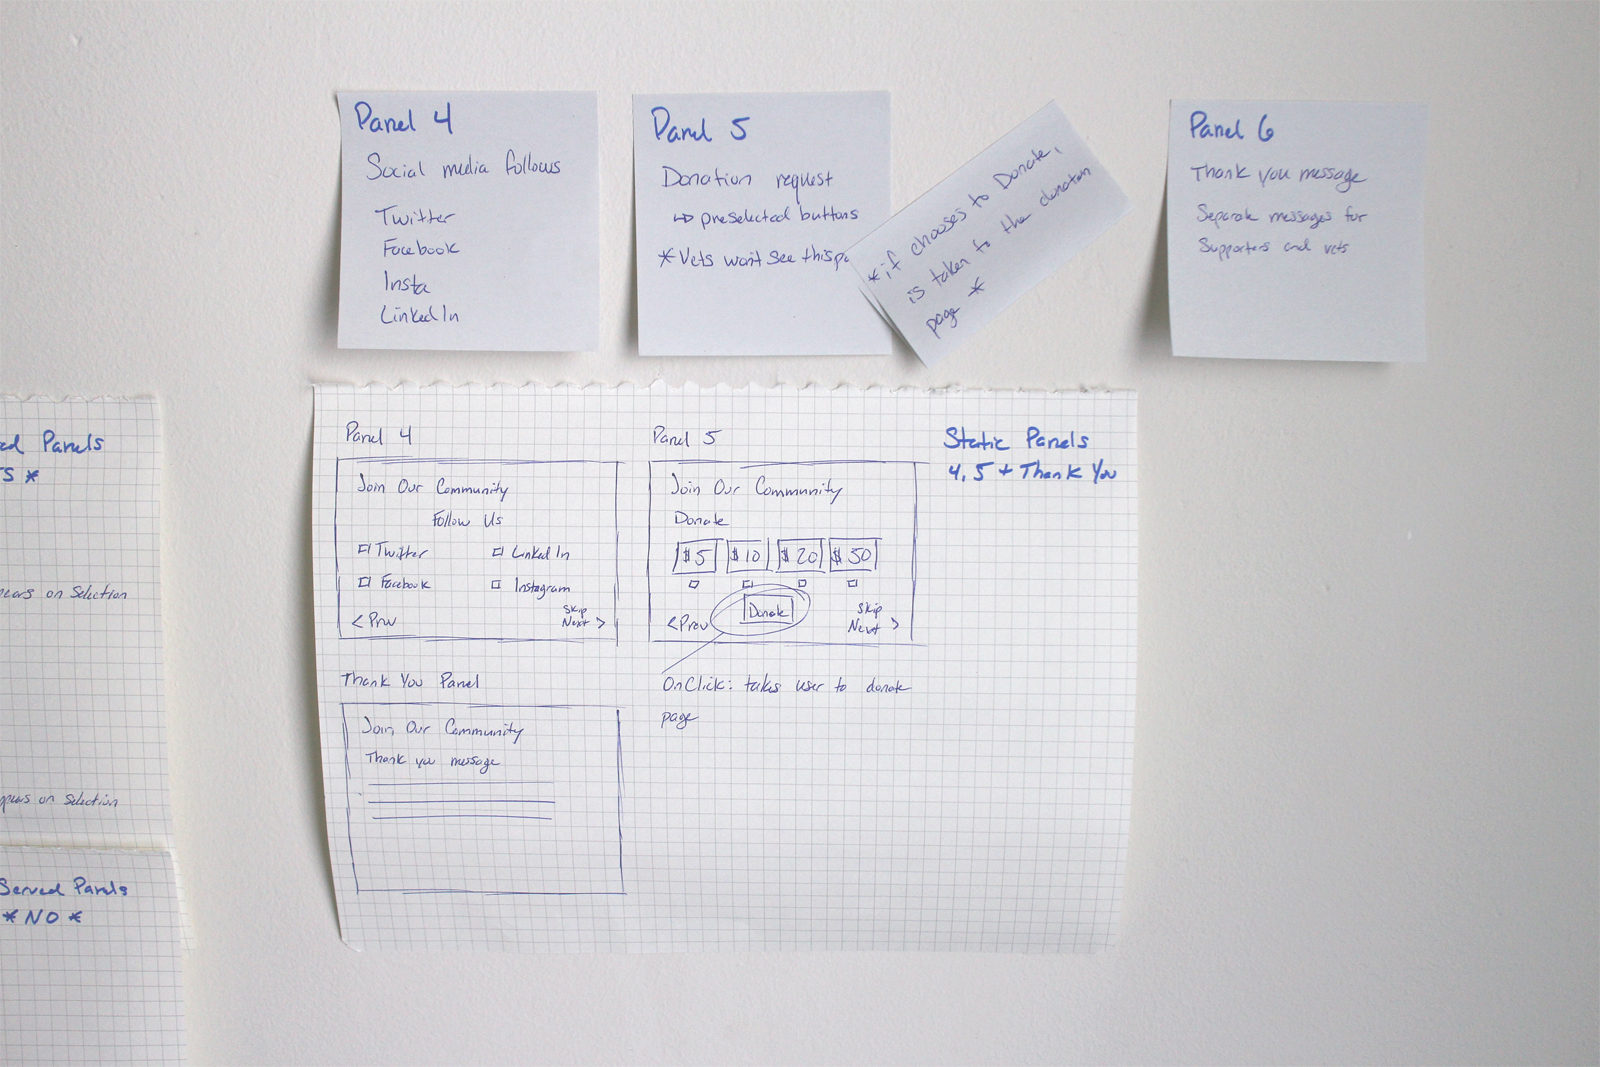 Panel 4
Social media follows
Twitter
Facebook
Insta
LinkedIn
Panel 5
Donation request
↳ preselected buttons
* Vets won't see this
*if chooses to Donate,
is taken to the donation
page *
Panel 6
Thank you message
Separate messages for
Supporters and vets
Panels
*
on Selection
on Selection
Served Panels
* NO *
Panel 4
Join Our Community
Follow Us
Twitter
LinkedIn
Facebook
Instagram
< Prev
Skip
Next >
Panel 5
Join Our Community
Donate
$5 $10 $20 $50
< Prev
Donate
Skip
Next >
OnClick: takes user to donate
page
Static Panels
4, 5 + Thank You
Thank You Panel
Join Our Community
Thank you message